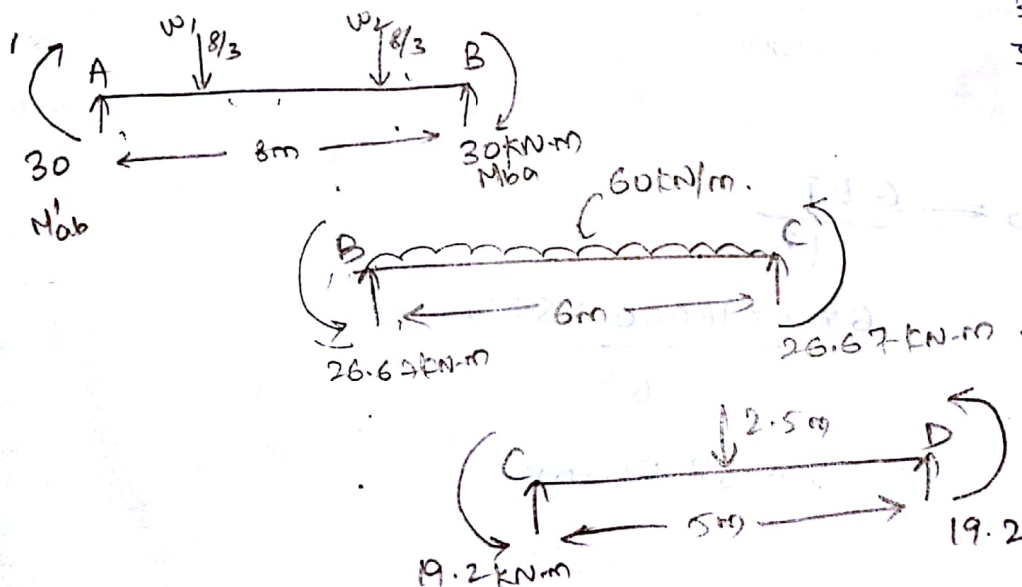 W1 8/3 W2 8/3
A B
8m
30 30 KN-m
M'ab M'ba
60 KN/m.
B C
6m
26.67 KN-m 26.67 KN-m
2.5 m
C D
5m
19.2 KN-m 19.2